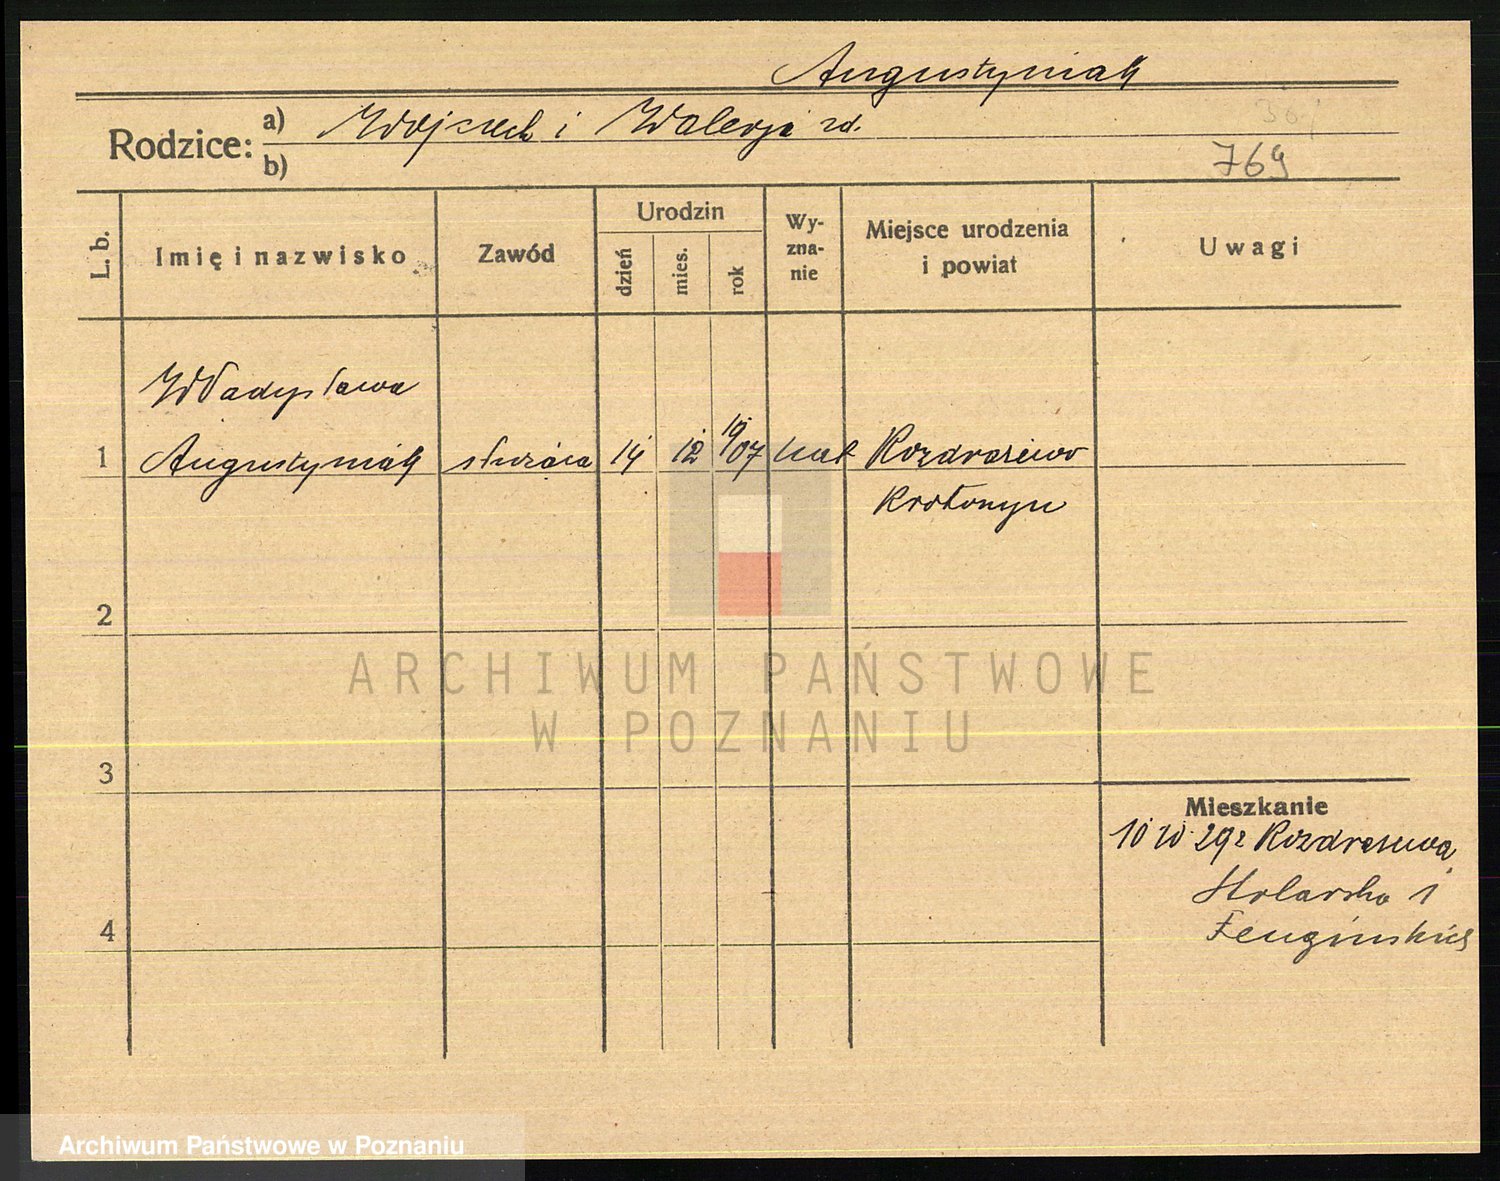 Augustyniak
Rodzice:
a) Wojciech i Walerja zd.
b)
769
L. b.
Imię i nazwisko
Zawód
Urodzin
dzień
mies.
rok
Wy-
zna-
nie
Miejsce urodzenia
i powiat
Uwagi
Władysława
1 Augustyniak służąca 14 12 1907 kat Rozdrażewo
Krotoszyn
2
3
4
Mieszkanie
10 10 29 z Rozdrażewa
Stolarska 1
ARCHIWUM PAŃSTWOWE
W POZNANIU
Archiwum Państwowe w Poznaniu